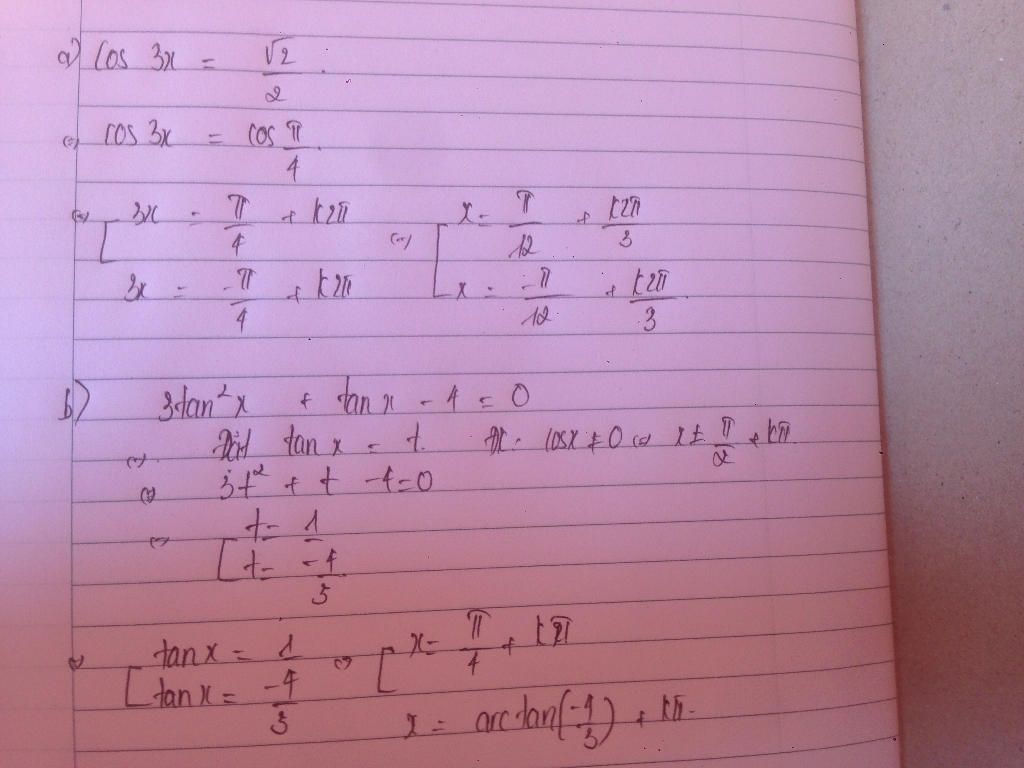 a) cos 3x = √2/2.
⇔ cos 3x = cos π/4.
⇔ [ 3x = π/4 + k2π ⇔ [ x = π/12 + k2π/3
3x = -π/4 + k2π x = -π/12 + k2π/3
b) 3tan²x + tan x - 4 = 0
⇔. Đặt tan x = t. ĐK: cosx ≠ 0 ⇔ x ≠ π/2 + kπ.
⇔ 3t² + t - 4 = 0
⇔ [ t = 1
t = -4/3
⇔ [ tan x = 1 ⇔ [ x = π/4 + kπ
tan x = -4/3 x = arctan(-4/3) + kπ.